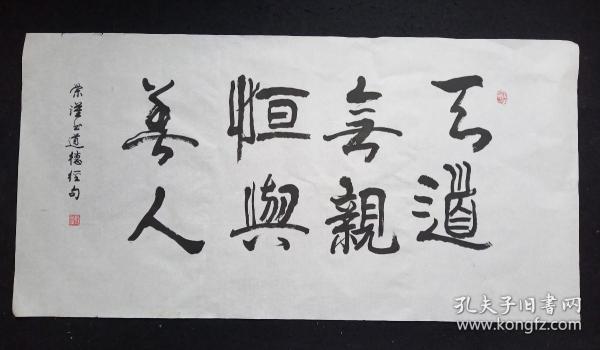 天道
無親
恒與
善人
荣漢书道德经句
孔夫子旧书网
www.kongfz.com